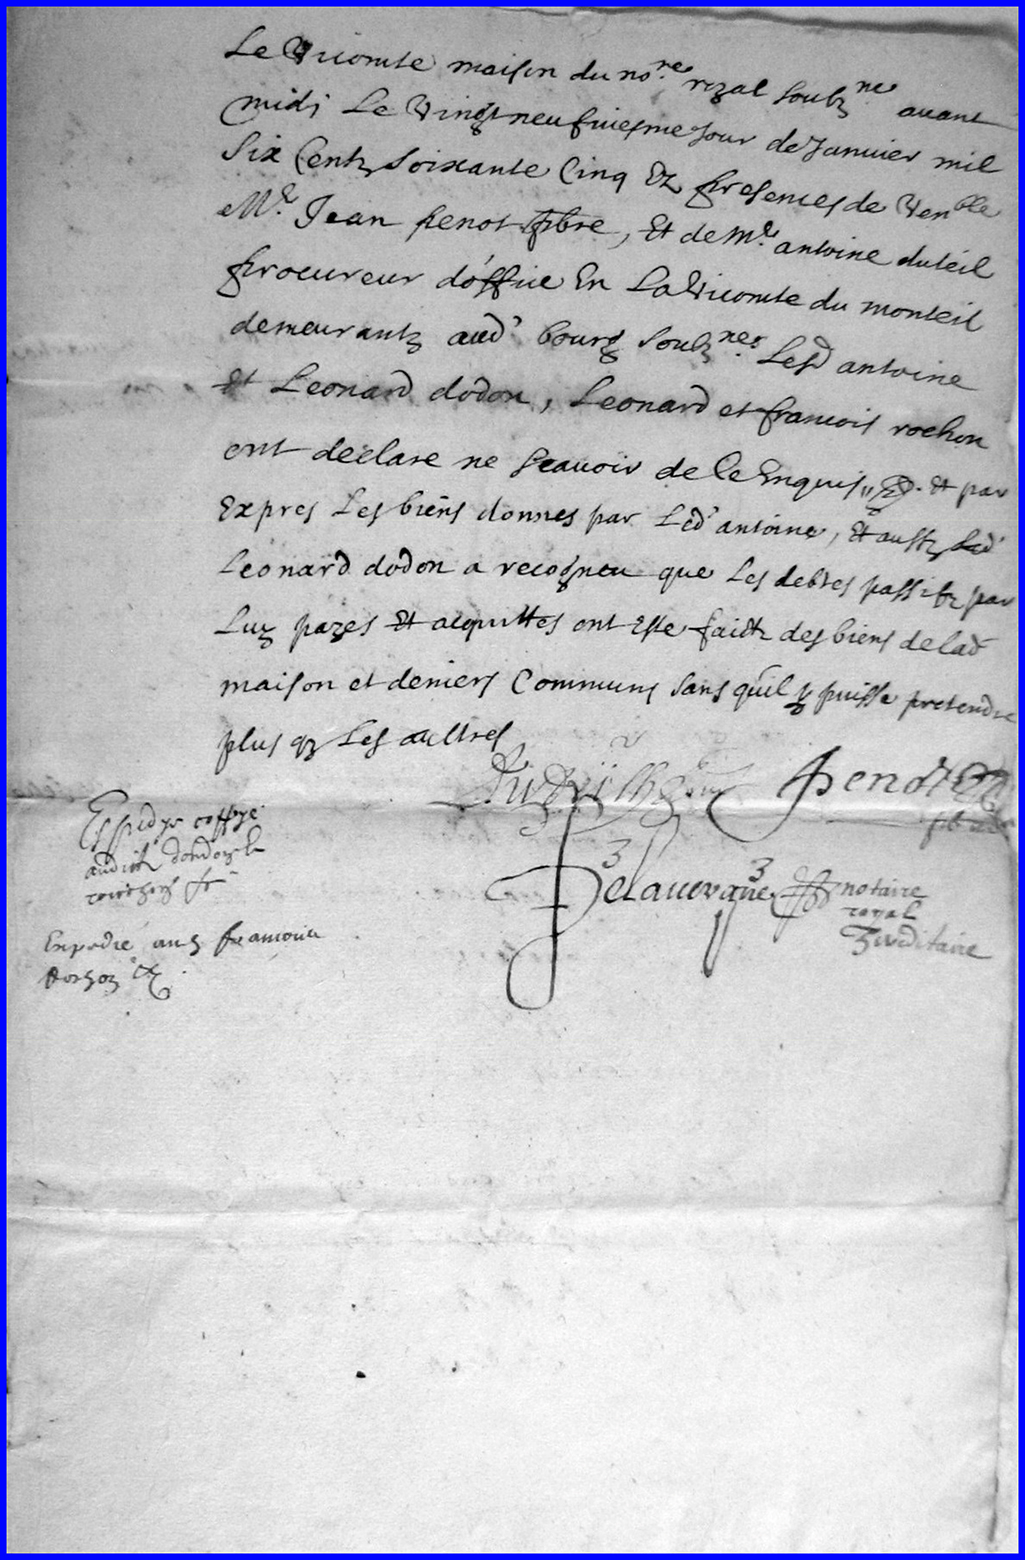 Le Vicomte maison du no.re royal soubz.ne avant
midj Le Vingt neufviesme Jour de Janvier mil
Six Centz Soixante Cinq Ez presences de Ven.ble
Mr. Jean penot pbre, Et de Mr. antoine duteil
procureur doffice En La Vicomte du monteil
demeurantz aud' bourg soubz.nes Lesd antoine
Et Leonard dodon, Leonard et francois rochon
ont declare ne scavoir de ce Enquis Et par
Expres Les biens donnes par Led' antoine, Et aussy led'
Leonard dodon a recogneu que Les debtes passifz par
Luy payes Et acquittes ont este faictz des biens de lad
maison et deniers Communs sans quil y puisse pretendre
plus q Les aultres
Penot
Delauvergne notaire
royal
hereditaire
Expedie coppie
audict dodon
Expedie aud francois
Rochon